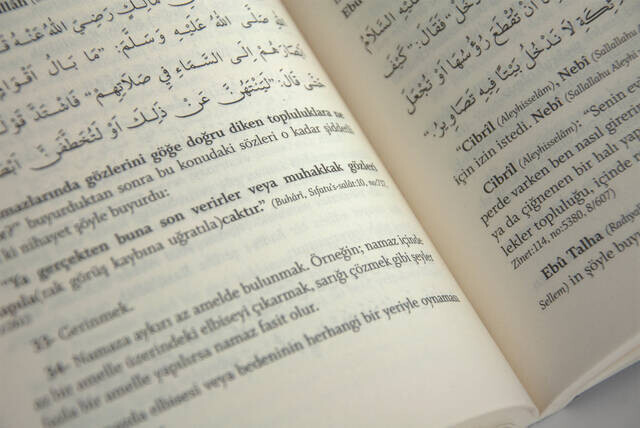 رَضِيَ اللهُ عَنْهُ
صَلَّى اللهُ عَلَيْهِ وَسَلَّمَ: "مَا بَالُ أَقْوَامٍ
أَبْصَارَهُمْ إِلَى السَّمَاءِ فِي صَلَاتِهِمْ" فَاشْتَدَّ
حَتَّى قَالَ: "لَيَنْتَهُنَّ عَنْ ذَلِكَ أَوْ لَتُخْطَفَنَّ
namazlarında gözlerini göğe doğru diken topluluklara ne
buyurduktan sonra bu konudaki sözleri o kadar şiddetli
ki nihayet şöyle buyurdu:
"Ya gerçekten buna son verirler veya muhakkak gözleri
(rak görüş kaybına uğratıla)caktır." (Buhârî, Sıfatu's-salât:10, no:717,
13- Gerinmek.
14- Namaza aykırı az amelde bulunmak. Örneğin; namaz içinde
az bir amelle üzerindeki elbiseyi çıkarmak, sarığı çözmek gibi şeyler
bir amelle yapılırsa namaz fasit olur.
elbisesi veya bedeninin herhangi bir yeriyle oynaması
عَلَيْهِ السَّلَامُ
فَقَالَ: "كَيْفَ
أَنْ تُقْطَعَ رُؤُسُهَا أَوْ تُجْعَلَ
لَا نَدْخُلُ بَيْتًا فِيهِ تَصَاوِيرُ"
"Cibrîl (Aleyhisselâm), Nebî (Sallallahu Aleyhi
için izin istedi. Nebî (Sallallahu Aleyhi
Cibrîl (Aleyhisselâm): "Senin ev
perde varken ben nasıl girer
ya da çiğnenen bir halı ya
lekler topluluğu, içinde
Zinet:114, no:5380, 8/607)
Ebû Talha (Radıy
Sellem) in şöyle buy